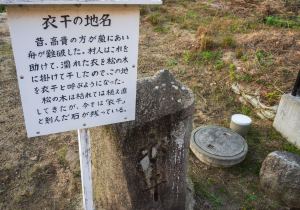 衣干の地名
昔、高貴の方が嵐にあい
舟が難破した。村人はこれを
助けて、濡れた衣を松の木
に掛けて干したので、この地
を衣干と呼ぶようになった。
松の木は枯れては植え直
してきたが、今では「衣干」
と刻んだ石が残っている。